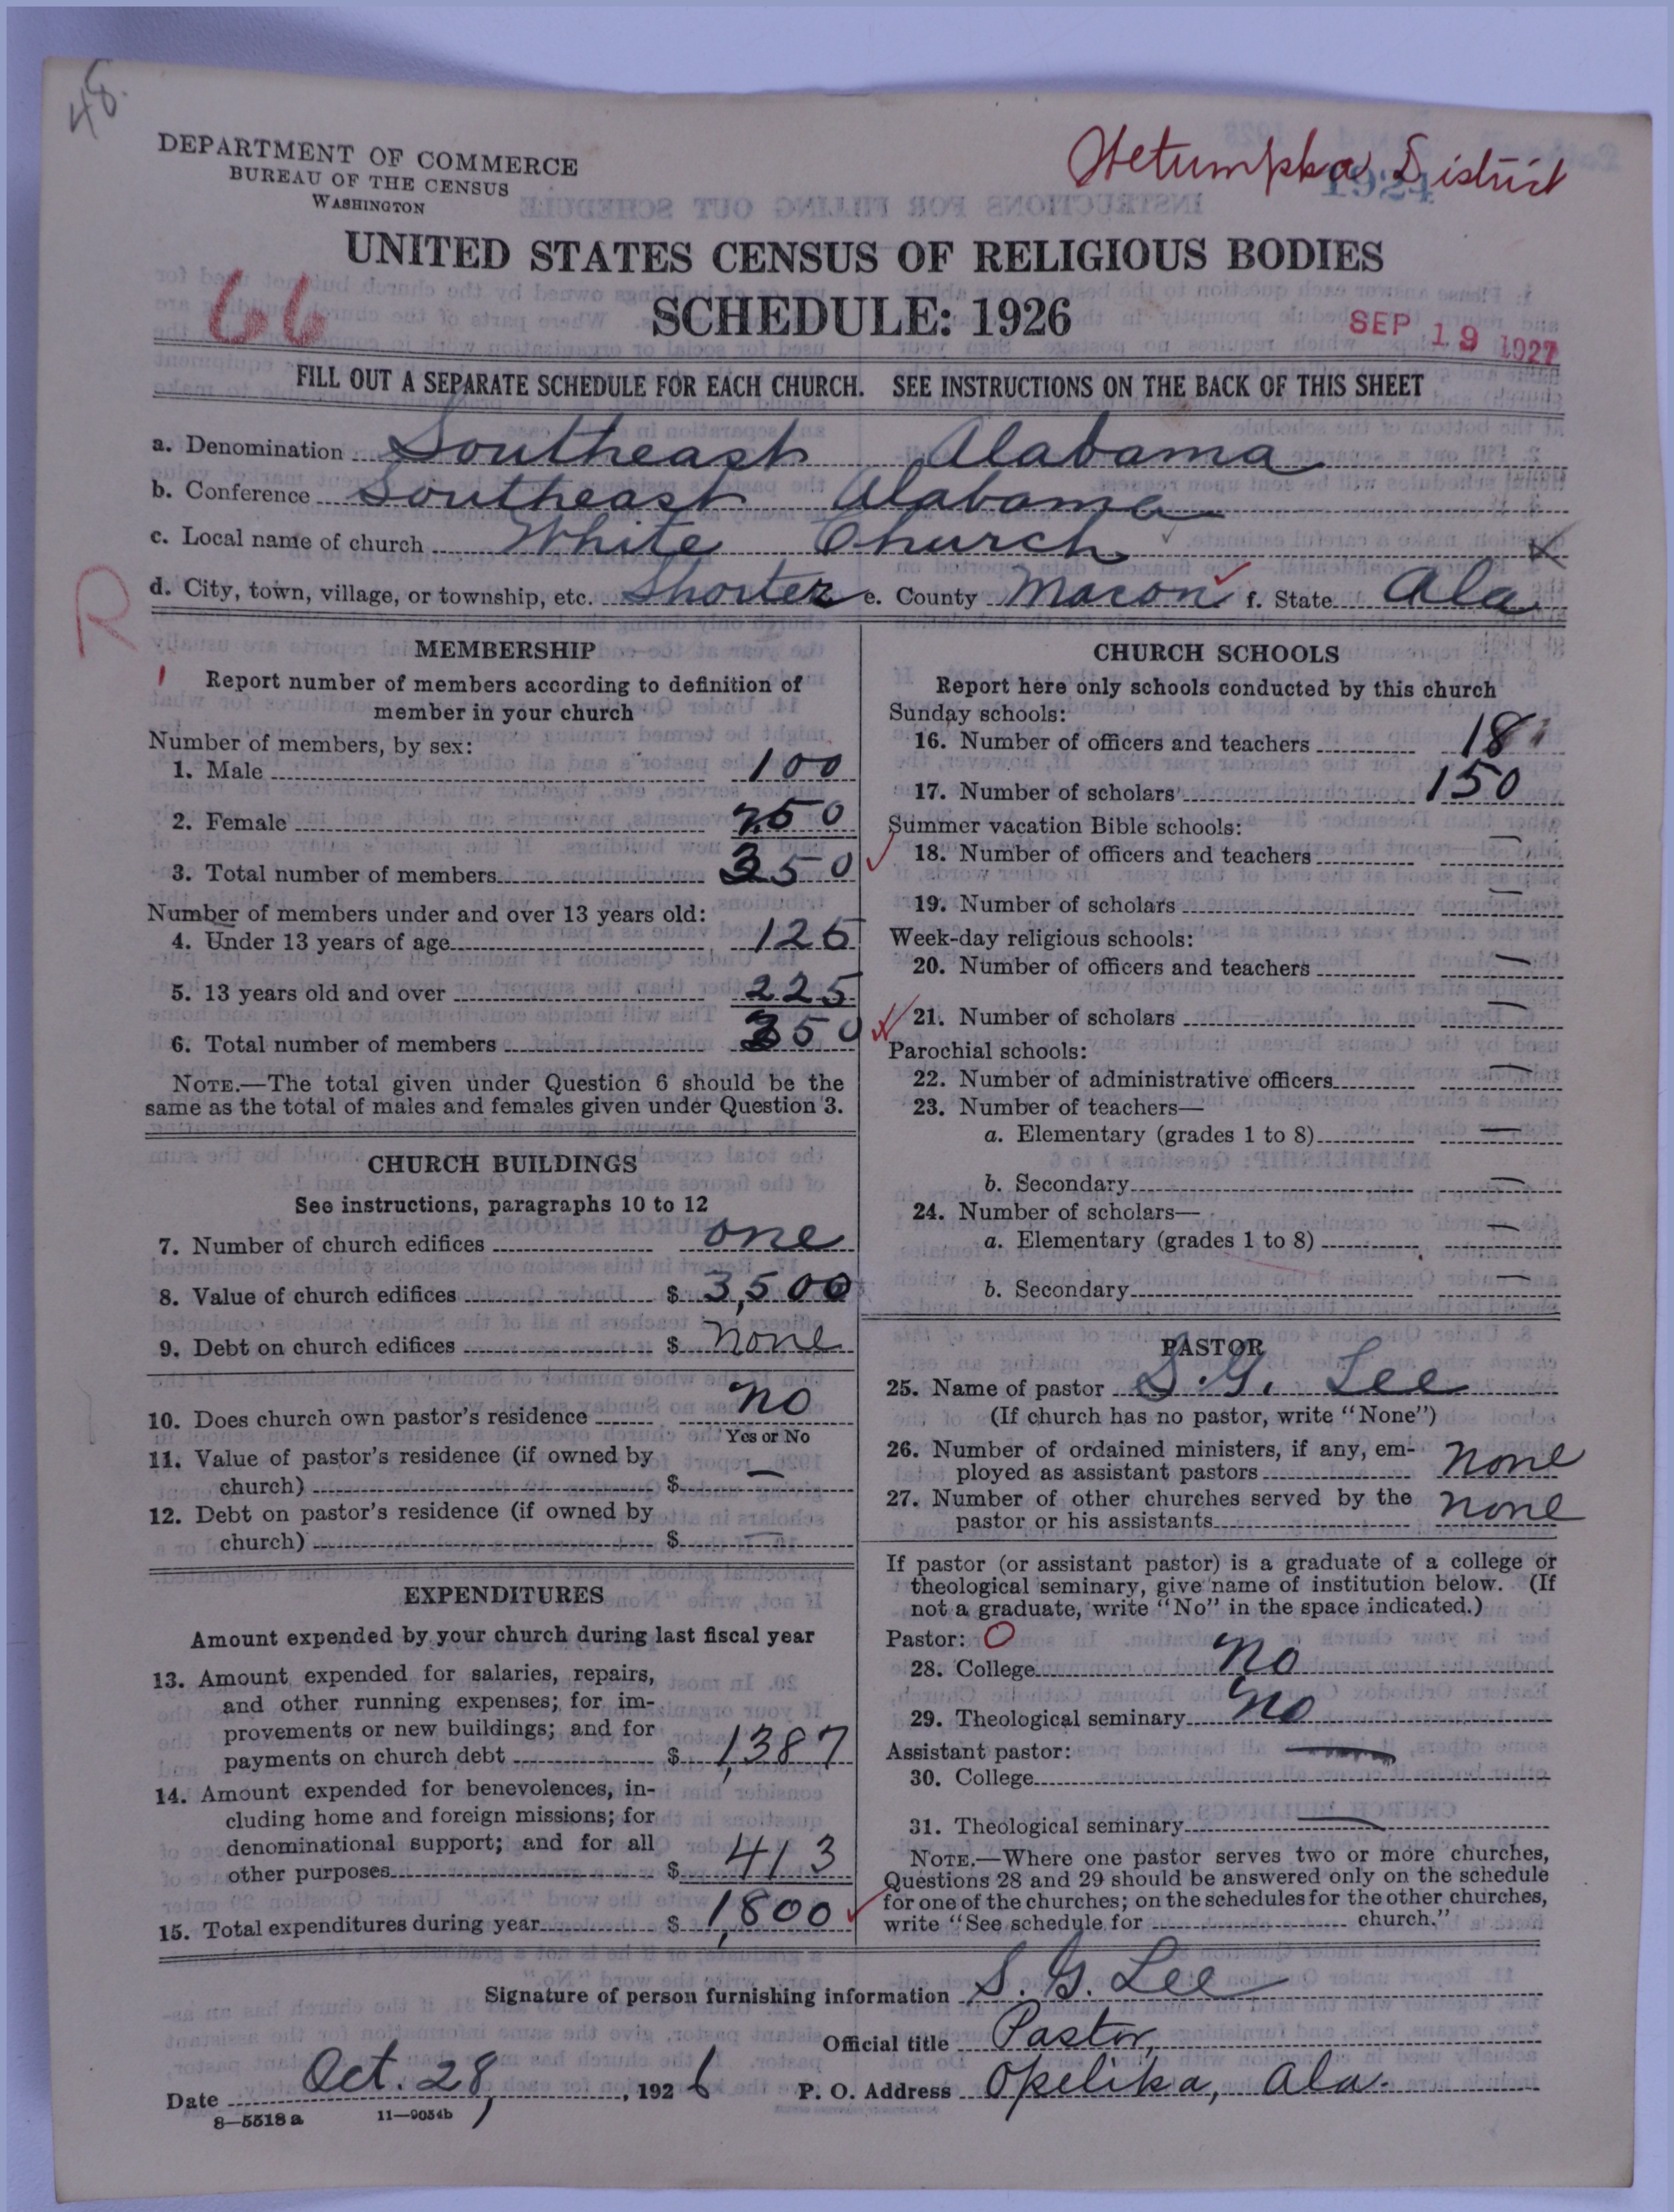 48.
DEPARTMENT OF COMMERCE
BUREAU OF THE CENSUS
WASHINGTON
Wetumpka District
1924
UNITED STATES CENSUS OF RELIGIOUS BODIES
66
SCHEDULE: 1926
SEP 19 1927
FILL OUT A SEPARATE SCHEDULE FOR EACH CHURCH. SEE INSTRUCTIONS ON THE BACK OF THIS SHEET
a. Denomination Southeast Alabama
b. Conference Southeast Alabama
c. Local name of church White Church
R
d. City, town, village, or township, etc. Shorter e. County Macon f. State Ala
MEMBERSHIP
Report number of members according to definition of
member in your church
Number of members, by sex:
1. Male 100
2. Female 250
3. Total number of members 350
Number of members under and over 13 years old:
4. Under 13 years of age 125
5. 13 years old and over 225
6. Total number of members 350
NOTE.—The total given under Question 6 should be the
same as the total of males and females given under Question 3.
CHURCH BUILDINGS
See instructions, paragraphs 10 to 12
7. Number of church edifices one
8. Value of church edifices $ 3,500
9. Debt on church edifices $ none
10. Does church own pastor's residence no
Yes or No
11. Value of pastor's residence (if owned by
church) $ —
12. Debt on pastor's residence (if owned by
church) $ —
EXPENDITURES
Amount expended by your church during last fiscal year
13. Amount expended for salaries, repairs,
and other running expenses; for im-
provements or new buildings; and for
payments on church debt $ 1,387
14. Amount expended for benevolences, in-
cluding home and foreign missions; for
denominational support; and for all
other purposes $ 413
15. Total expenditures during year $ 1,800
CHURCH SCHOOLS
Report here only schools conducted by this church
Sunday schools:
16. Number of officers and teachers 18
17. Number of scholars 150
Summer vacation Bible schools:
18. Number of officers and teachers —
19. Number of scholars —
Week-day religious schools:
20. Number of officers and teachers —
21. Number of scholars —
Parochial schools:
22. Number of administrative officers —
23. Number of teachers—
a. Elementary (grades 1 to 8) —
b. Secondary —
24. Number of scholars—
a. Elementary (grades 1 to 8) —
b. Secondary —
PASTOR
25. Name of pastor S. G. Lee
(If church has no pastor, write "None")
26. Number of ordained ministers, if any, em-
ployed as assistant pastors none
27. Number of other churches served by the
pastor or his assistants none
If pastor (or assistant pastor) is a graduate of a college or
theological seminary, give name of institution below. (If
not a graduate, write "No" in the space indicated.)
Pastor: O
28. College no
29. Theological seminary no
Assistant pastor: —
30. College
31. Theological seminary —
NOTE.—Where one pastor serves two or more churches,
Questions 28 and 29 should be answered only on the schedule
for one of the churches; on the schedules for the other churches,
write "See schedule for church."
Signature of person furnishing information S. G. Lee
Official title Pastor,
Date Oct. 28, 1926 P. O. Address Opelika, Ala.
8—5518 a 11—9034b